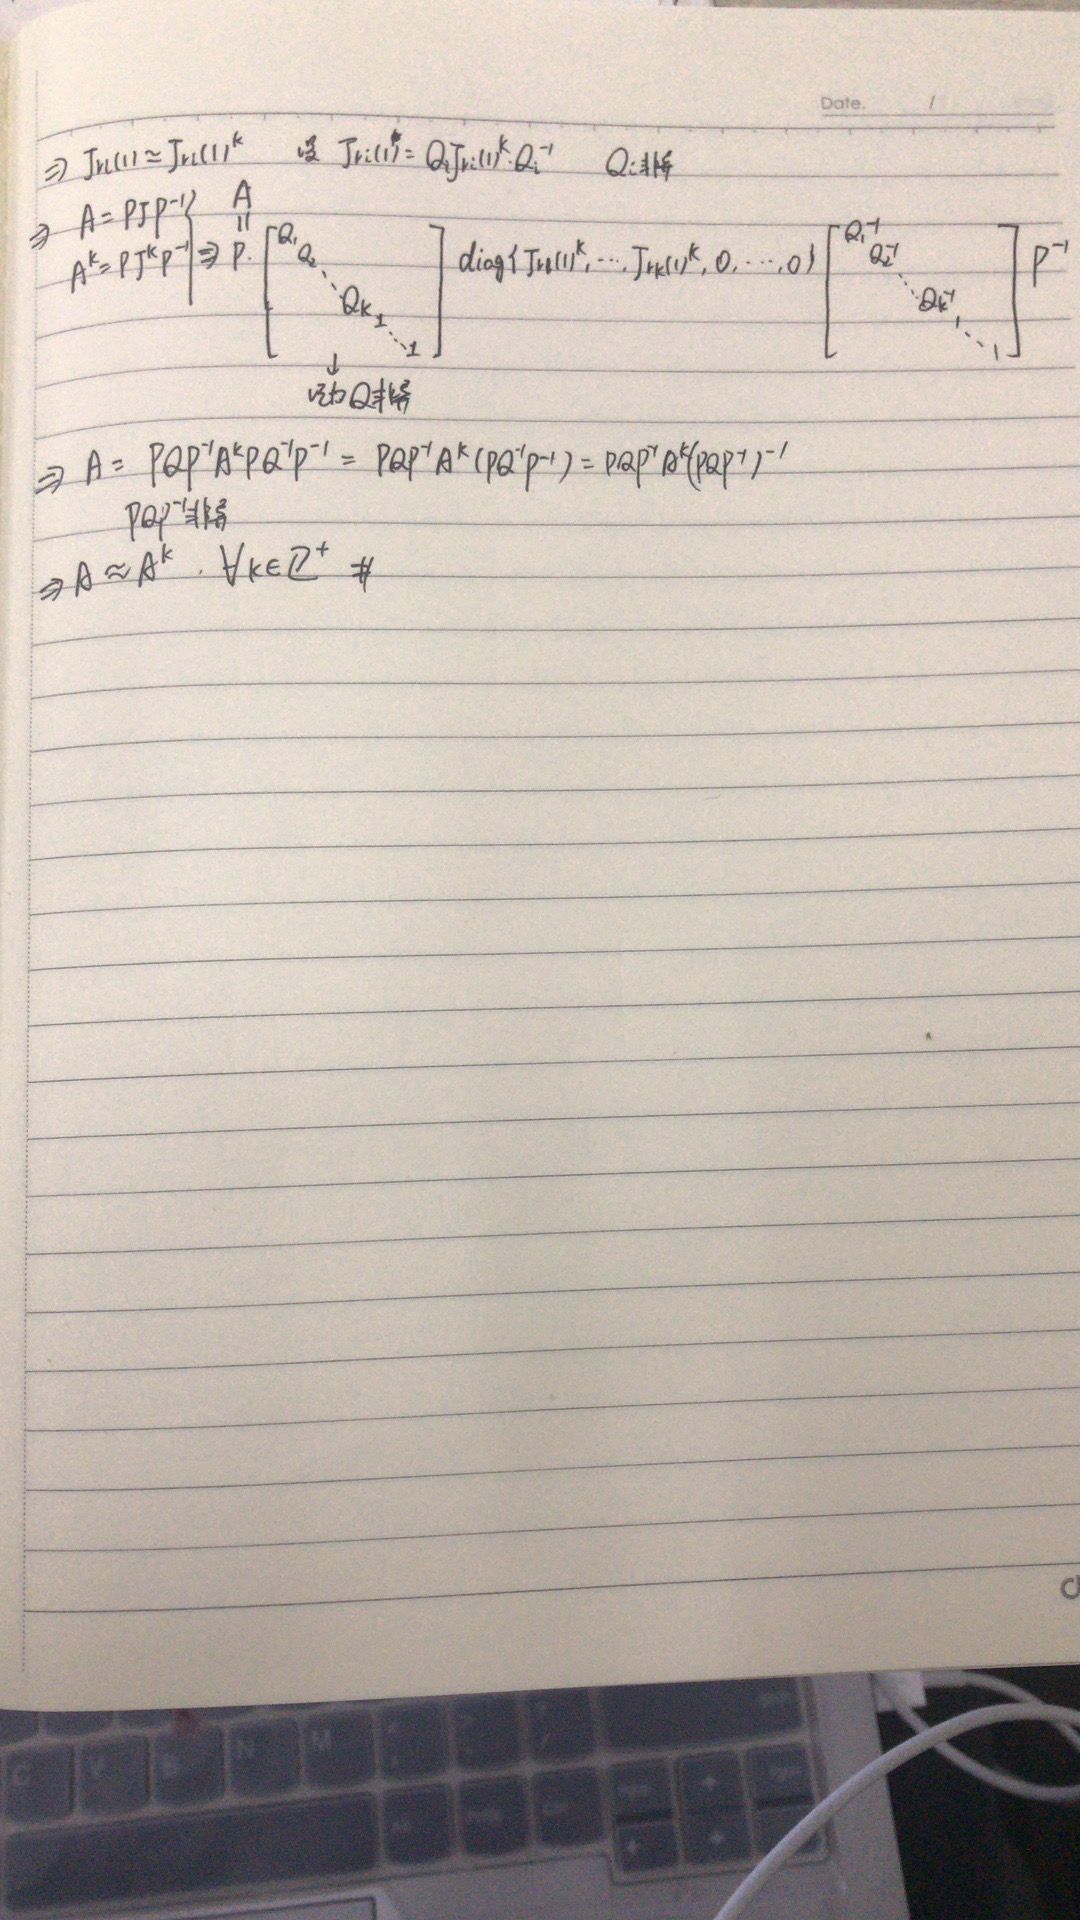 Date. /
⇒ Jri(1) ≃ Jri(1)^k 设 Jri(1) = QiJri(1)^k·Qi^-1 Qi非降
⇒ A = PJP^-1 A
A^k = PJ^kP^-1 ⇒ P. [Q1 Q2 ⋱ Qk 1 ⋱ 1] diag{Jr1(1)^k, ..., Jrk(1)^k, 0, ..., 0} [Q1^-1 Q2^-1 ⋱ Qk^-1 1 ⋱ 1] P^-1
↓
记为Q非降
⇒ A = PQP^-1A^kPQ^-1P^-1 = PQP^-1A^k(PQ^-1P^-1) = PQP^-1A^k(PQP^-1)^-1
PQP^-1非降
⇒ A ≈ A^k . ∀k∈Z^+ #
C
V
B
N
M